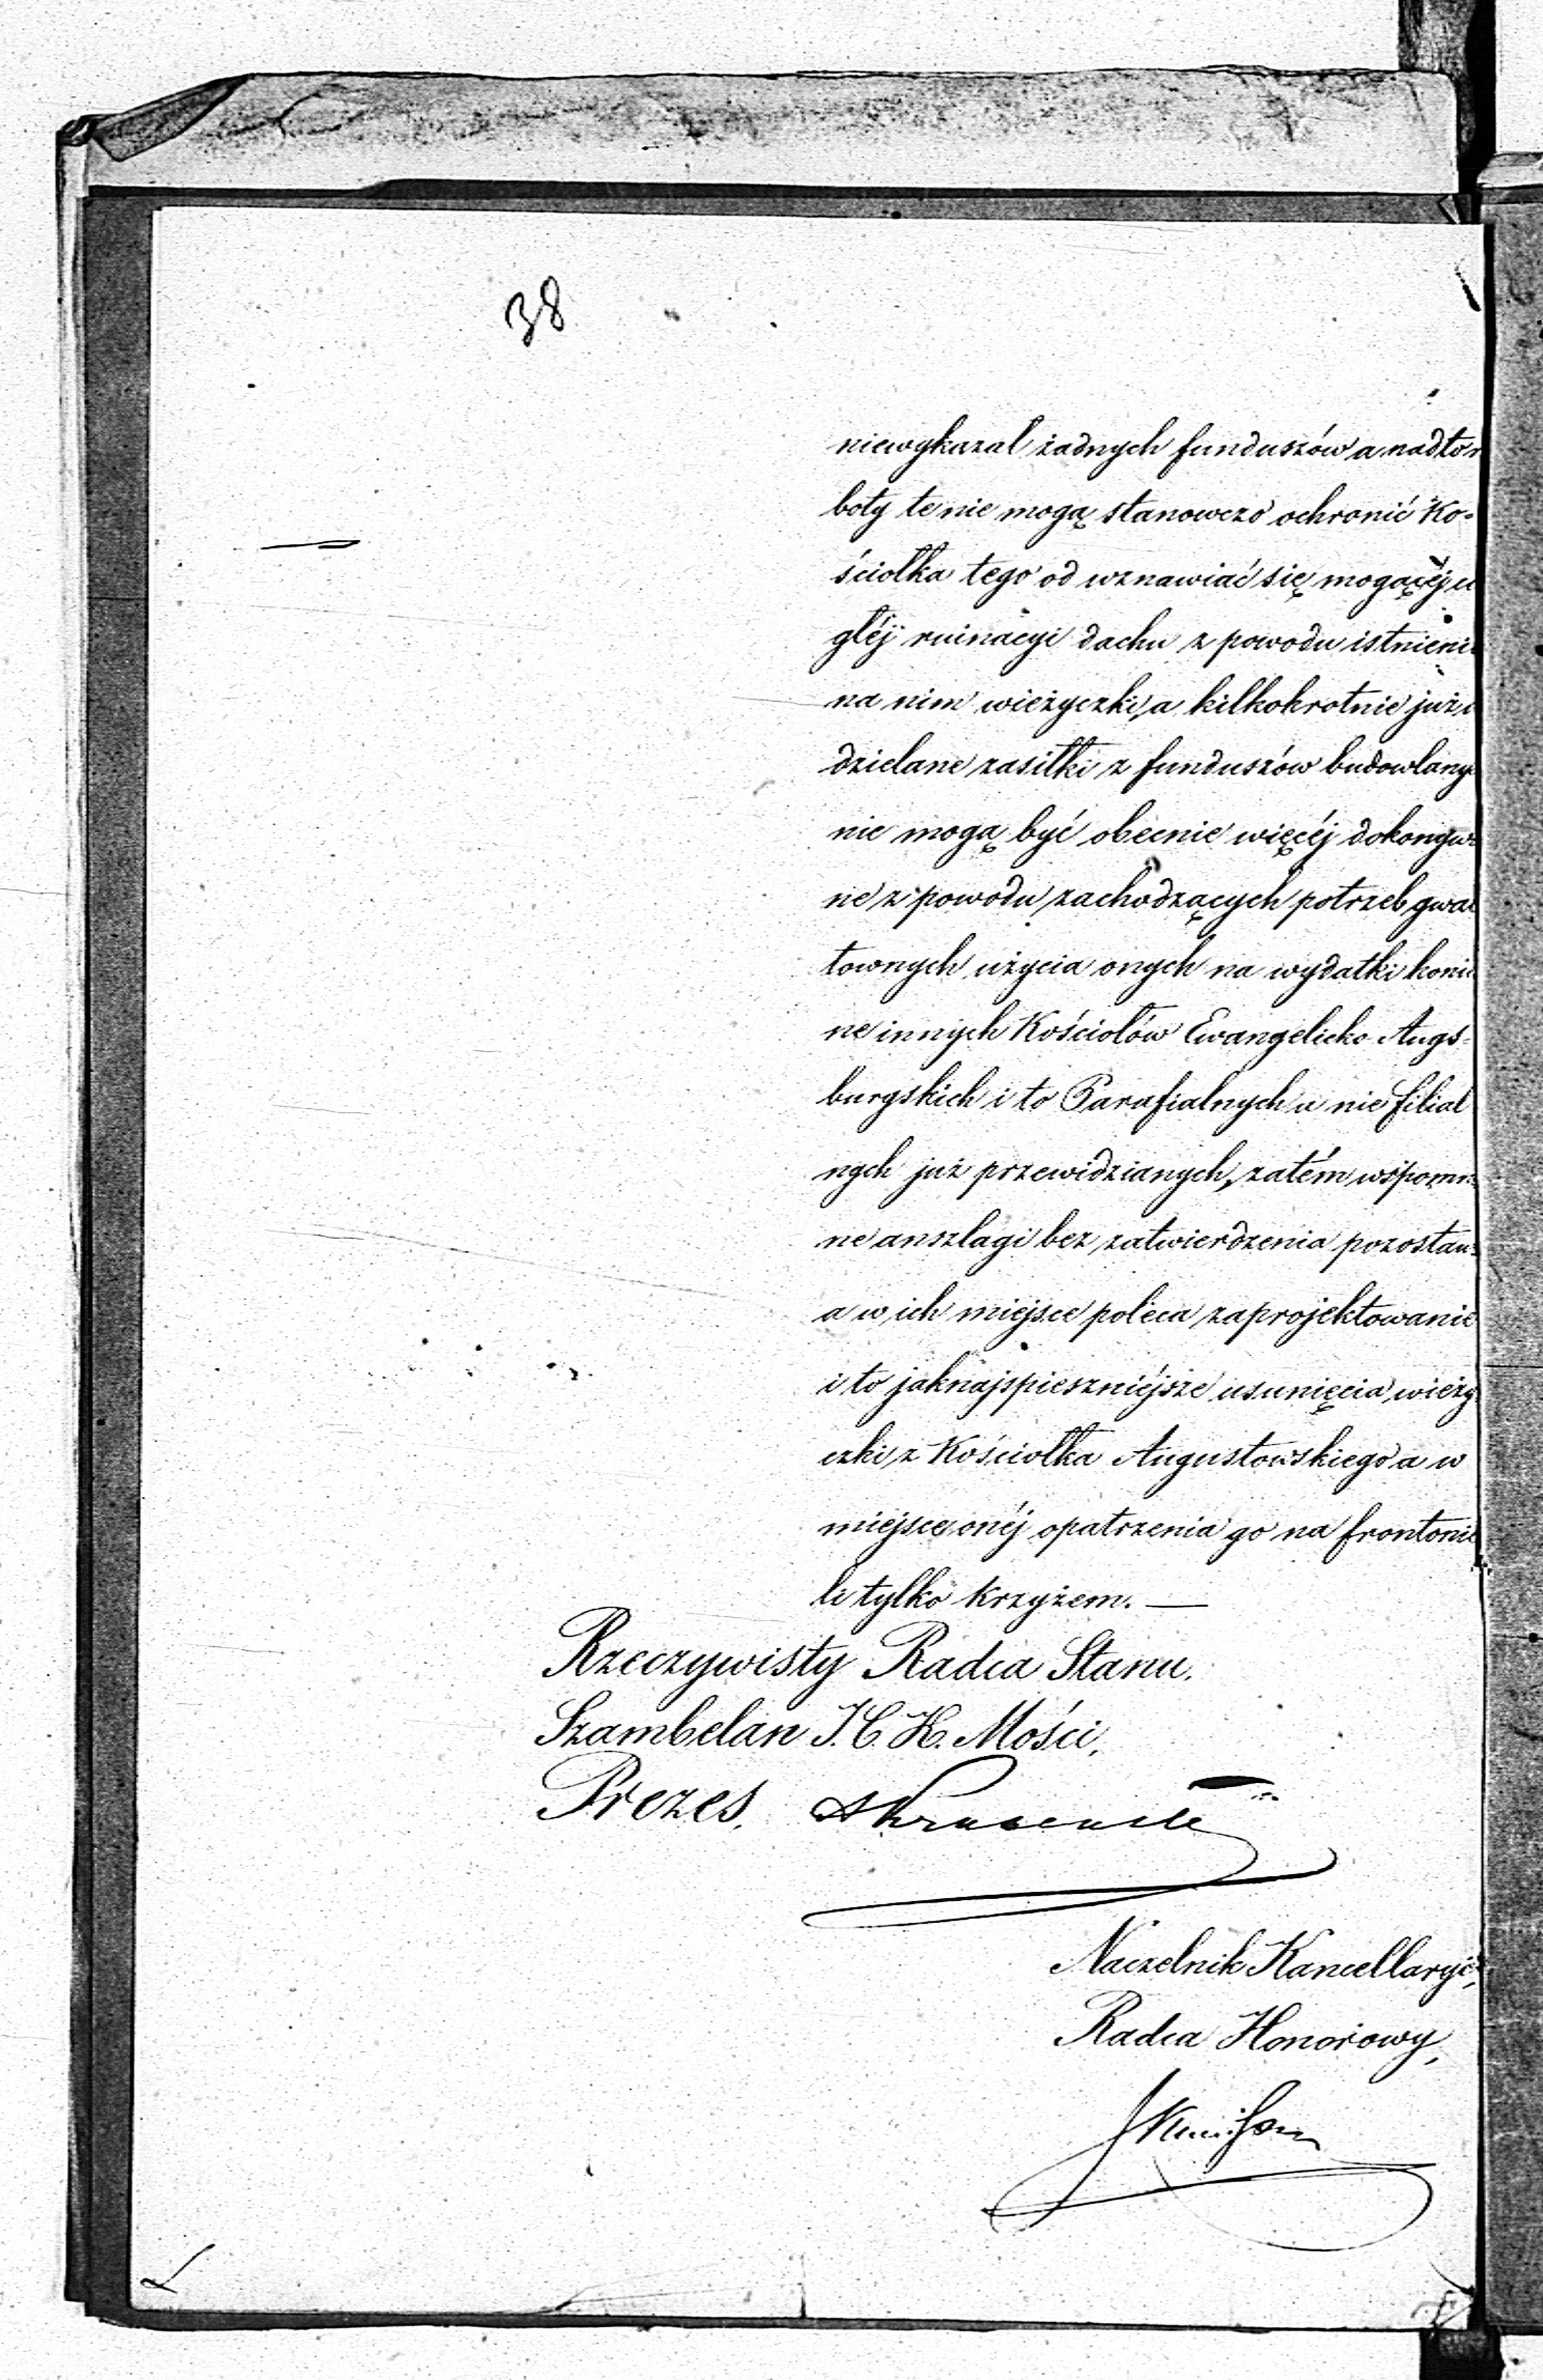 38
niewykazał żadnych funduszów a nadto r
boty te nie mogą stanowczo ochronić Ko-
ściołka tego od wznawiać się mogącéj u
głéj ruinacyi dachu z powodu istnieni
na nim wieżyczki, a kilkokrotnie już u
dzielane zasiłki z funduszów budowlany
nie mogą być obecnie więcéj dokonywa
ne z powodu zachodzących potrzeb gwał
townych użycia onych na wydatki konie
ne innych Kościołów Ewangelicko Augs-
burgskich i to Parafialnych a nie filial
nych już przewidzianych, zatém wspomn
ne anszlagi bez zatwierdzenia pozostaw
a w ich miejsce poleca zaprojektowanie
i to jaknajspieszniéjsze usunięcia wieży
czki z Kościołka Augustowskiego a w
miejsce onéj opatrzenia go na frontonie
li tylko krzyżem. —
Rzeczywisty Radca Stanu.
Szambelan J. C. K. Mości,
Prezes.
Naczelnik Kancellaryi,
Radca Honorowy,